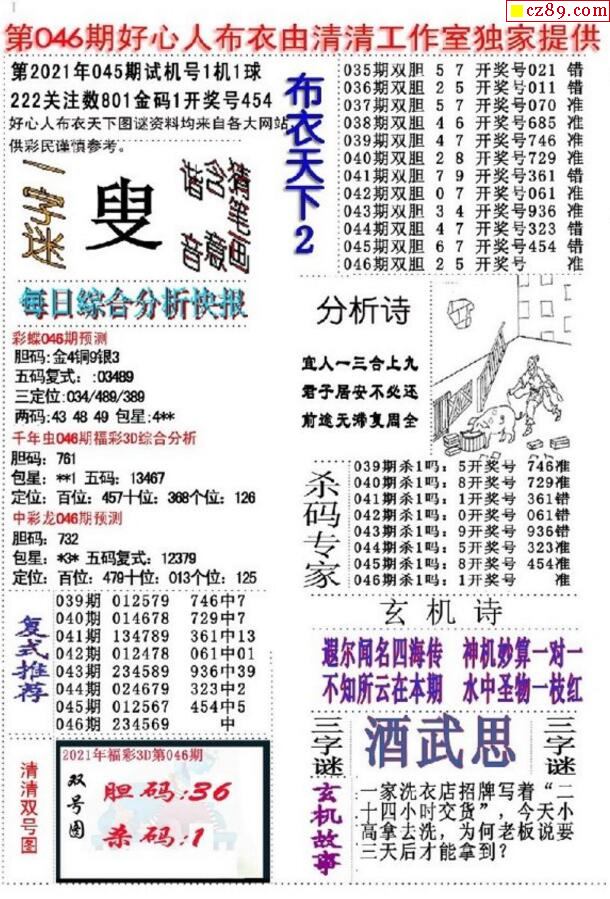 cz89.com
第046期好心人布衣由清清工作室独家提供
第2021年045期试机号1机1球
222关注数801金码1开奖号454
好心人布衣天下图谜资料均来自各大网站,
供彩民谨慎参考。
一字迷
叟
猜笔画
含意
谐音
每日综合分析快报
彩蝶046期预测
胆码:金4铜9银3
五码复式：:03489
三定位:034/489/389
两码:43 48 49 包星:4**
千年虫046期福彩3D综合分析
胆码：761
包星：**1 五码：13467
定位：百位：457十位：368个位：126
中彩龙046期预测
胆码：732
包星：*3* 五码复式：12379
定位：百位：479十位：013个位：125
复式推荐
039期 012579 746中7
040期 014678 729中7
041期 134789 361中13
042期 012478 061中01
043期 234589 936中39
044期 024679 323中2
045期 012567 454中5
046期 234569 中
清清双号图
2021年福彩3D第046期
双号图
胆码:36
杀码:1
布衣天下2
035期双胆 5 7 开奖号021 错
036期双胆 2 5 开奖号011 错
037期双胆 5 7 开奖号070 准
038期双胆 4 6 开奖号685 准
039期双胆 4 7 开奖号746 准
040期双胆 2 8 开奖号729 准
041期双胆 7 9 开奖号361 错
042期双胆 0 7 开奖号061 准
043期双胆 3 4 开奖号936 准
044期双胆 4 7 开奖号323 错
045期双胆 6 7 开奖号454 错
046期双胆 2 5 开奖号 准
分析诗
宜人一三合上九
君子居安不必还
前途无滞复周全
杀码专家
039期杀1吗：5开奖号 746准
040期杀1吗：8开奖号 729准
041期杀1吗：1开奖号 361错
042期杀1吗：0开奖号 061错
043期杀1吗：9开奖号 936错
044期杀1吗：5开奖号 323准
045期杀1吗：8开奖号 454准
046期杀1吗：1开奖号 准
玄机诗
遐尔闻名四海传 神机妙算一对一
不知所云在本期 水中圣物一枝红
三字谜
酒武思
三字谜
玄机故事
一家洗衣店招牌写着“二
十四小时交货”，今天小
高拿去洗，为何老板说要
三天后才能拿到？